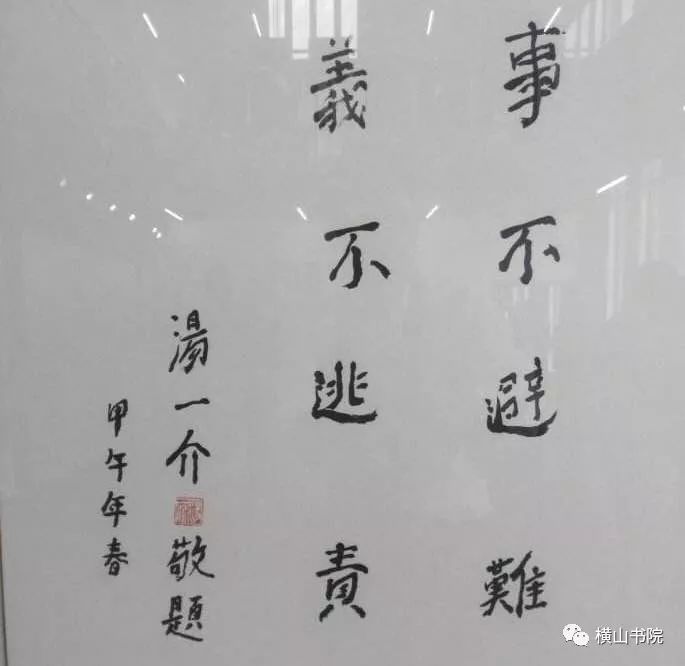 事不避難
義不逃責
湯一介敬題
甲午年春
横山书院